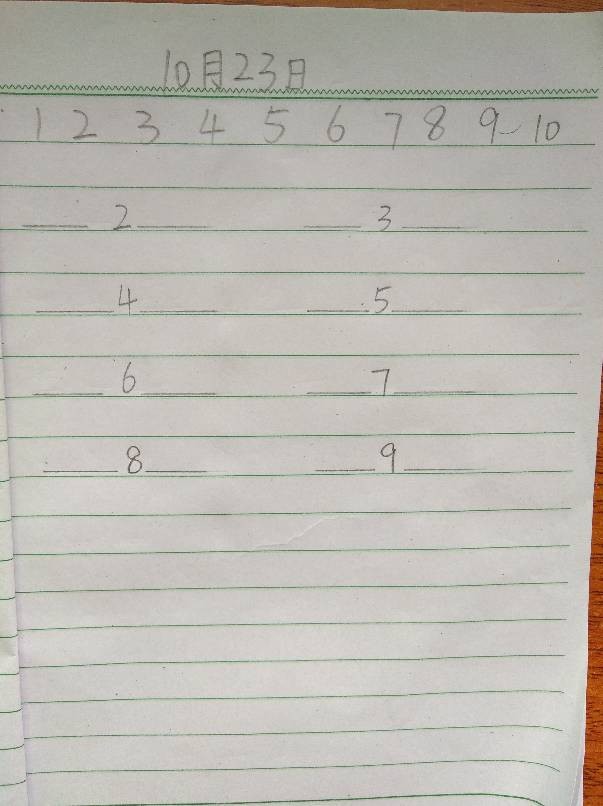 10月23日
1 2 3 4 5 6 7 8 9 10
___2___ ___3___
___4___ ___5___
___6___ ___7___
___8___ ___9___